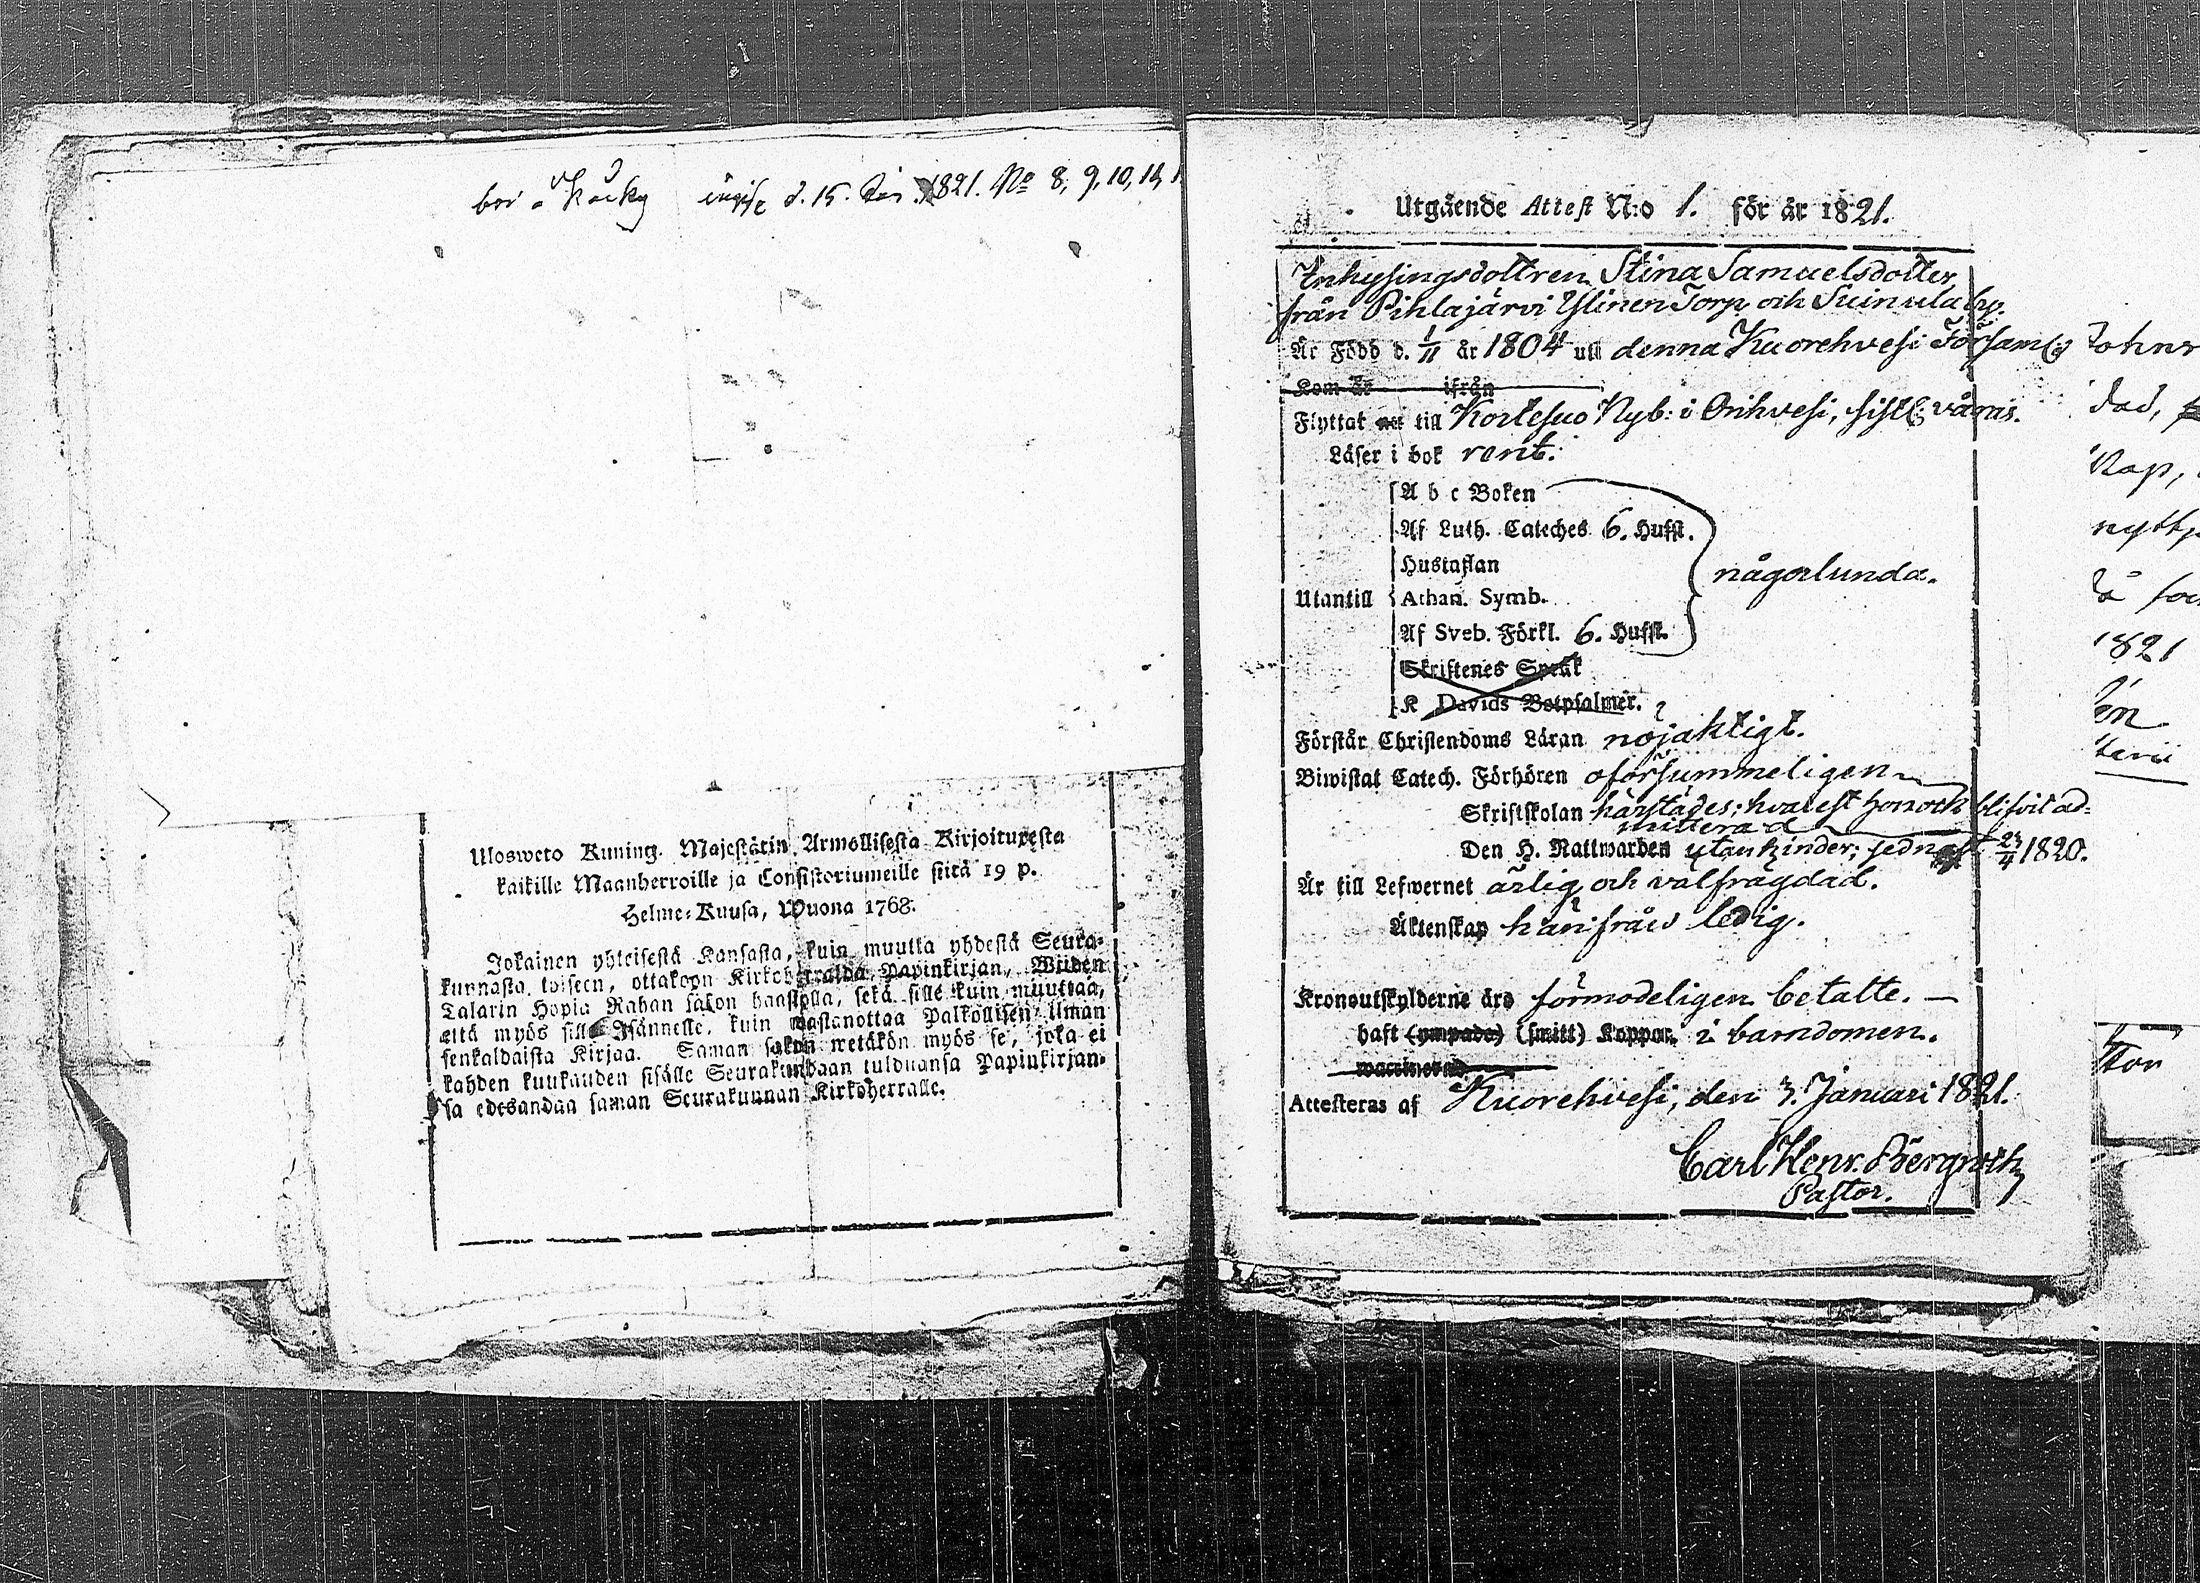 d. 15. 1821. No 8, 9, 10, 11, 1
Uloswето Kuning. Majestätin Armollisesta Kirjoituxesta
kaikille Maanherroille ja Consistoriumeille siitä 19 p.
Helme-Kuusa, Wuona 1768.
Jokainen yhteisestä Kansasta, kuin muutta yhdestä Seura-
kunnasta toiseen, ottakoon Kirkoherralda Papinkirjan, Wiiden
Talarin Hopia Rahan sakon haastolla, sekä sille kuin muuttaa,
että myös sille Isännelle, kuin wastanottaa Palkollisen ilman
senkaldaista Kirjaa. Saman sakon wetäkön myös se, joka ei
kahden kuukauden sisälle Seurakundaan tulduansa Papinkirjan-
sa edesandaa saman Seurakunnan Kirkoherralle.
Utgående Attest N:o 1. för år 1821.
Inhysingsdottren Stina Samuelsdotter
från Pihlajärvi Ylinen Torp och Suinula by.
Är Född d. 1/11 år 1804 uti denna Kuorehvesi Församl:g
Kom år ifrån
Flyttat nu till Kortesuo Nyb: i Orihvesi, sistl: våras.
Läser i bok rent.
A b c Boken
Af Luth. Cateches 6. Hufst.
Hustaflan
någorlunda.
Utantill Athan. Symb.
Af Sveb. Förkl. 6. Hufst.
Skriftenes Språk
K Davids Botpsalmer.
Förstår Christendoms Läran nöjaktigt.
Biwistat Catech. Förhören oförsummeligen
Skriftskolan härstädes; hvarest hon ock blifvit ad-
mitterad
Den H. Nattwarden utan hinder; sednast 23/4 1820.
Är till Lefwernet ärlig och välfrägdad.
Äktenskap härifrån ledig.
Kronoutskylderne äro förmodeligen betalte.
haft (ympade) (smitt) Koppor i barndomen.
waccinerad
Attesteras af Kuorehvesi, den 3. Januari 1821.
Carl Henr. Bergroth
Pastor.
1821